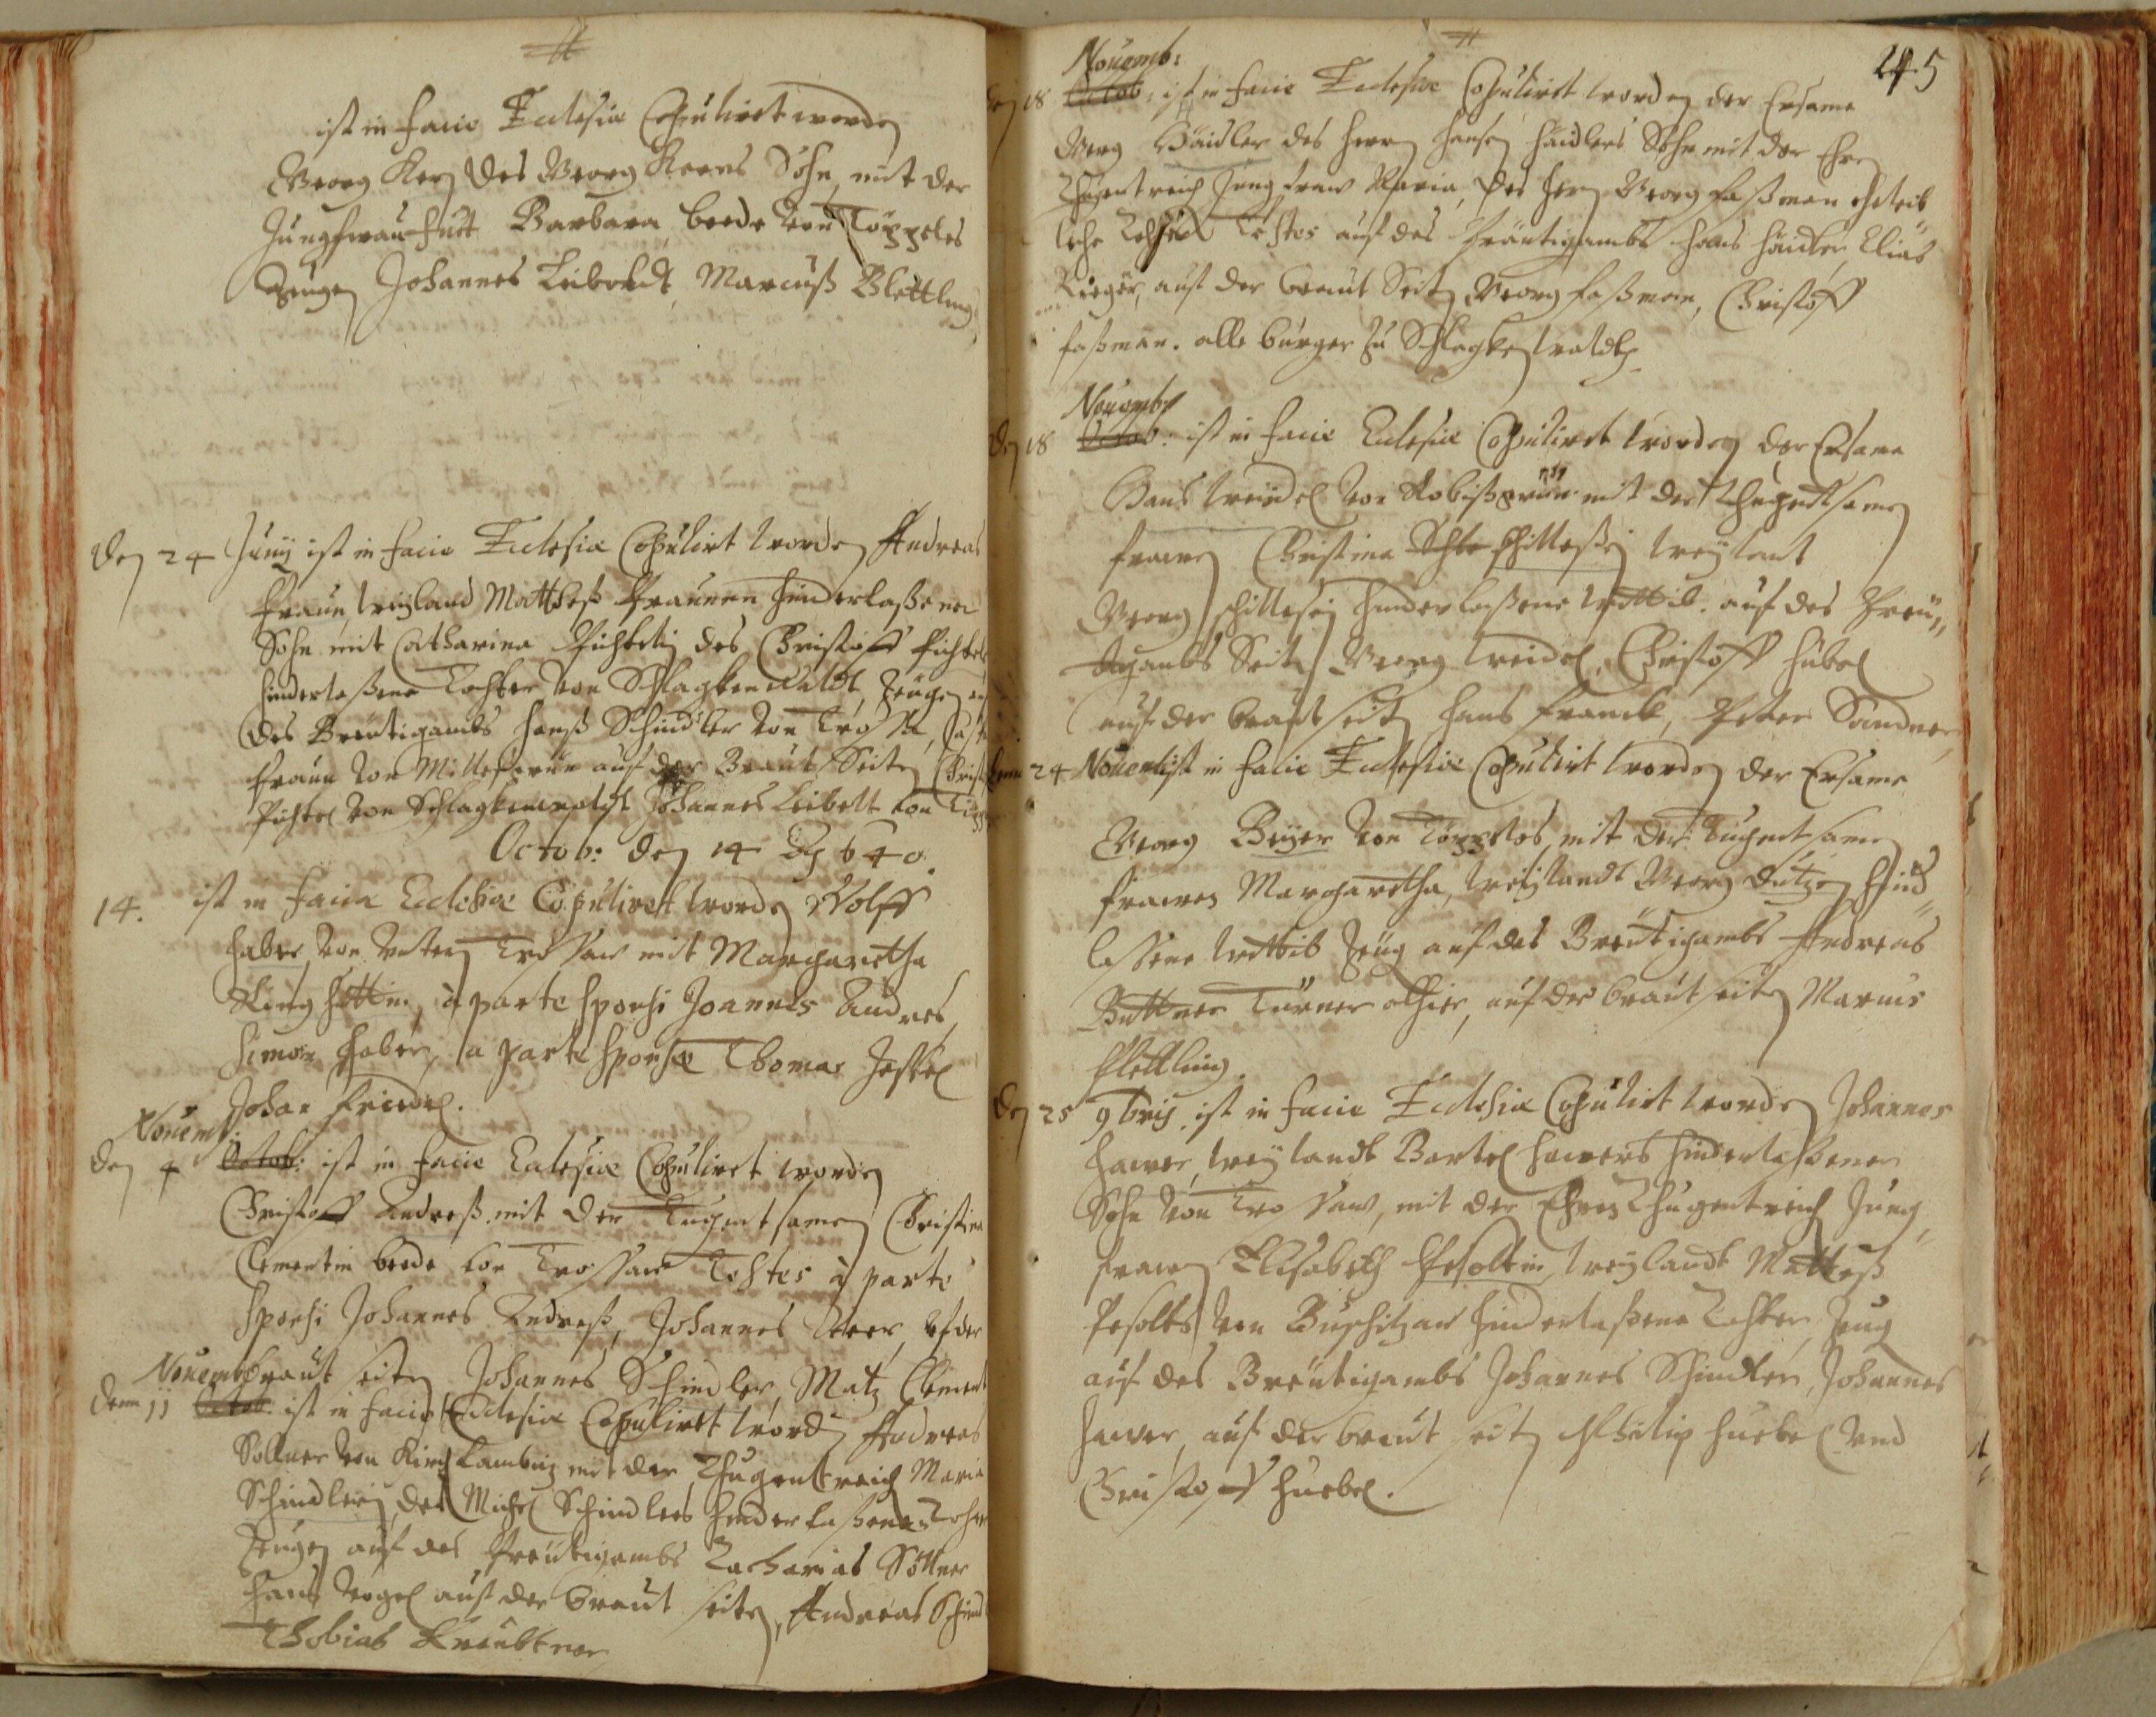 ist in facie Ecclesiæ Copulirt worden
Georg Kern des Georg Kerns Sohn, mit der
Jungfrau Barbara beede von Töppeles
Zeugen Johannes Leiboldt, Marcuß Plettling
den 24 Junÿ ist in facie Ecclesiæ Copulirt worden Andreas
Fraun, weÿland Mattheß Fraunen hinderlaßener
Sohn mit Catharina Pichtelin des Christoff Pichtels
hinderlaßene Tochter von Schlagkenwaldt, Zeugen auf
des Breutigambs Hanß Schindler von Trossa,
Fraun von Millesgrün auf der Braut Seiten Christ
Pichtel von Schlagkenwaldt Johannes Leibelt von
Octob: den 14 640.
14. ist in facie Ecclesiæ Copulirt worden Wolff
Haber von untern Trossau mit Margaretha
à parte Sponsi Joannes Andres,
Simon Haber, a parte Sponsæ Thomas
Johan Friedel.
Nouemb:
den 4 Octob: ist in facie Ecclesiæ Copulirt worden
Christoff Andreß mit der Tugentsamen Christina
Clementin beede von Trossau Testes à parte
Sponsi Johannes Andreß, Johannes uf der
Braut seiten Johannes Schindler, Matz Clement
Nouemb
denn 11 Octob: ist in facie Ecclesiæ Copulirt worden Andreas
Söllner von Kirchlambiz mit der Thugentreich Maria
Schindlerin, des Michel Schindlers hinderlaßene Tochter
Zeugen auf des Preutigambs Zacharias Söllner
Hans Vogel auf der Braut seiten, Andreas Schind
Thobias Kreubtner
245
Nouemb:
den 18 Octob: ist in facie Ecclesiæ Copulirt worden der Ersame
Georg Häidler des Herrn Hansen Häidlers Sohn mit der Ehrn
Thugentreich Jungfraw Maria, des Hern Georg Faßman eheleib
liche Testes auf des Präutigambs Hans Häidler, Elias
Rieger, auf der braut Seiten Georg Faßman, Christoff
Faßman. alle bürger zu Schlagkenwaldt.
Nouemb
den 18 Octob: ist in facie Ecclesiæ Copulirt worden der Ersame
Hans Weidel von mit der Thugentsamen
Frawen Christina Schillessin weÿlant
Georg Schillessen hinderlaßene Wittib. auf des Preü
tigambs Seiten Georg Weidel, Christoff Hübel
auf der braut seiten Hans Franck, Peter Sandner
denn 24 Nouemb ist in facie Ecclesiæ Copulirt worden der Ersame
Georg Beÿer von Töppeles, mit der Tugentsamen
Frawen Margaretha, weÿlandt Georg hind
lassene Wittib Zeug auf des Breütigambs Andreas
Buttner Türner alhier, auf der braut seiten Marcus
Plettling.
den 25 9bris. ist in facie Ecclesiæ Copulirt worden Johannes
Hawer, weÿlandt Bartel Hawers hinderlaßener
Sohn von Trossaw, mit der Ehren Thugentreich Jung
frawen Elisabeth Pesoltin, weÿlandt Matteß
Pesolts von Buschizau hinderlaßene Tochter, Zeug
auf des Breütigambs Johannes Schindler, Johannes
Hawer, auf der braut seiten Philip Huebel und
Christoff Huebel.